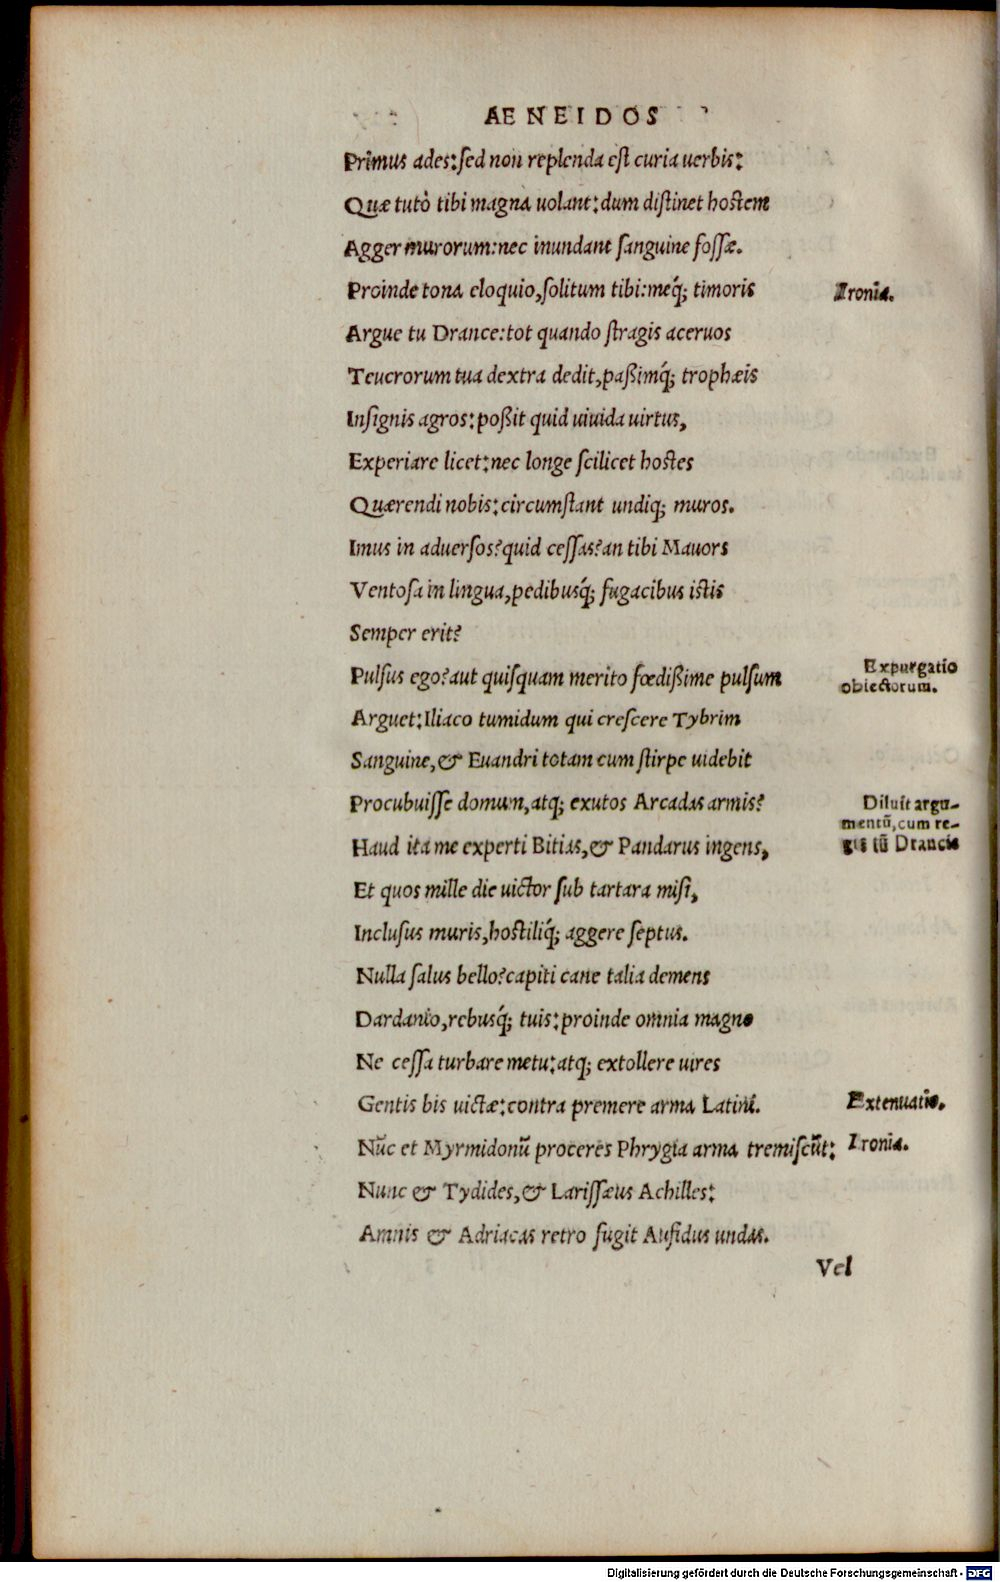 AENEIDOS
Primus ades: sed non replenda est curia uerbis:
Quæ tutò tibi magna uolant: dum distinet hostem
Agger murorum: nec inundant sanguine fossæ.
Proinde tona eloquio, solitum tibi: meq́; timoris
Ironia.
Argue tu Drance: tot quando stragis aceruos
Teucrorum tua dextra dedit, paßimq́; trophæis
Insignis agros: poßit quid uiuida uirtus,
Experiare licet: nec longe scilicet hostes
Quærendi nobis: circumstant undiq; muros.
Imus in aduersos? quid cessas? an tibi Mauors
Ventosa in lingua, pedibusq́; fugacibus istis
Semper erit?
Pulsus ego? aut quisquam merito fœdißime pulsum
Expurgatio
obiectorum.
Arguet: Iliaco tumidum qui crescere Tybrim
Sanguine, & Euandri totam cum stirpe uidebit
Procubuisse domum, atq; exutos Arcadas armis?
Diluit argu-
mentū, cum re-
gis tū Drancis
Haud ita me experti Bitias, & Pandarus ingens,
Et quos mille die uictor sub tartara misi,
Inclusus muris, hostiliq́; aggere septus.
Nulla salus bello? capiti cane talia demens
Dardanio, rebusq́; tuis: proinde omnia magno
Ne cessa turbare metu: atq; extollere uires
Gentis bis uictæ: contra premere arma Latini.
Extenuatio.
Nūc et Myrmidonū proceres Phrygia arma tremiscūt:
Ironia.
Nunc & Tydides, & Larissæus Achilles:
Amnis & Adriacas retro fugit Aufidus undas.
Vel
Digitalisierung gefördert durch die Deutsche Forschungsgemeinschaft - DFG